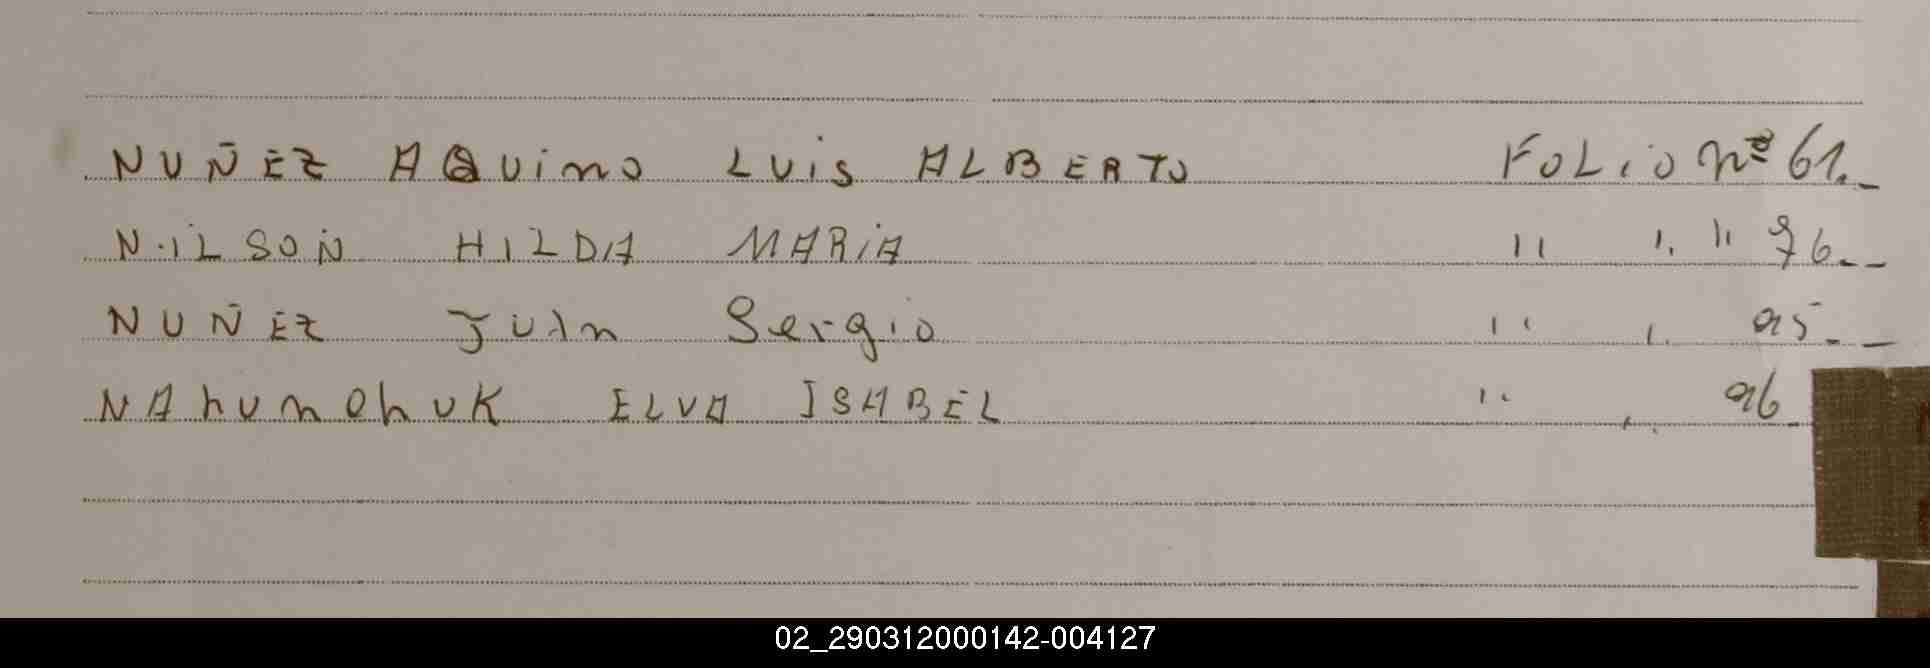 NUÑEZ AQUino LUiS ALBERTO FOLiO Nº 61.-
NiLSON HILDA MARiA " " " 76.-
NUÑEZ JUAn Sergio " " 95.-
NAhunchuK ELVA ISABEL " " 96
02_290312000142-004127